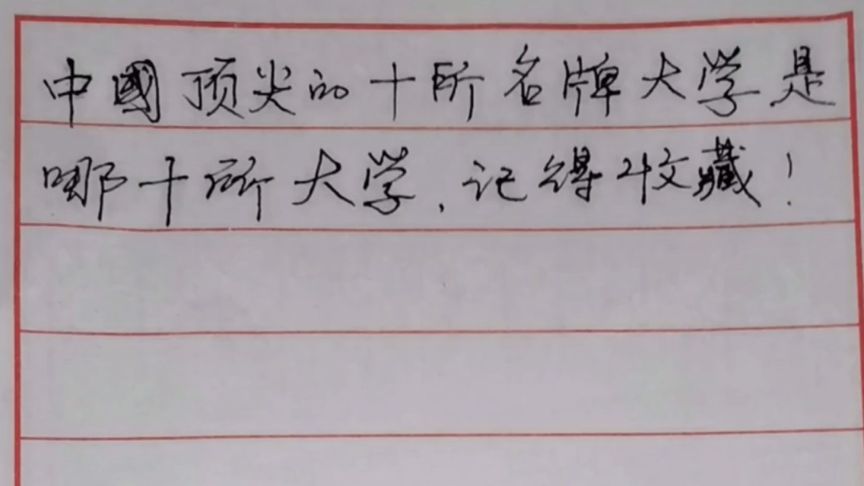 中國顶尖的十所名牌大学是
哪十所大学,记得收藏!